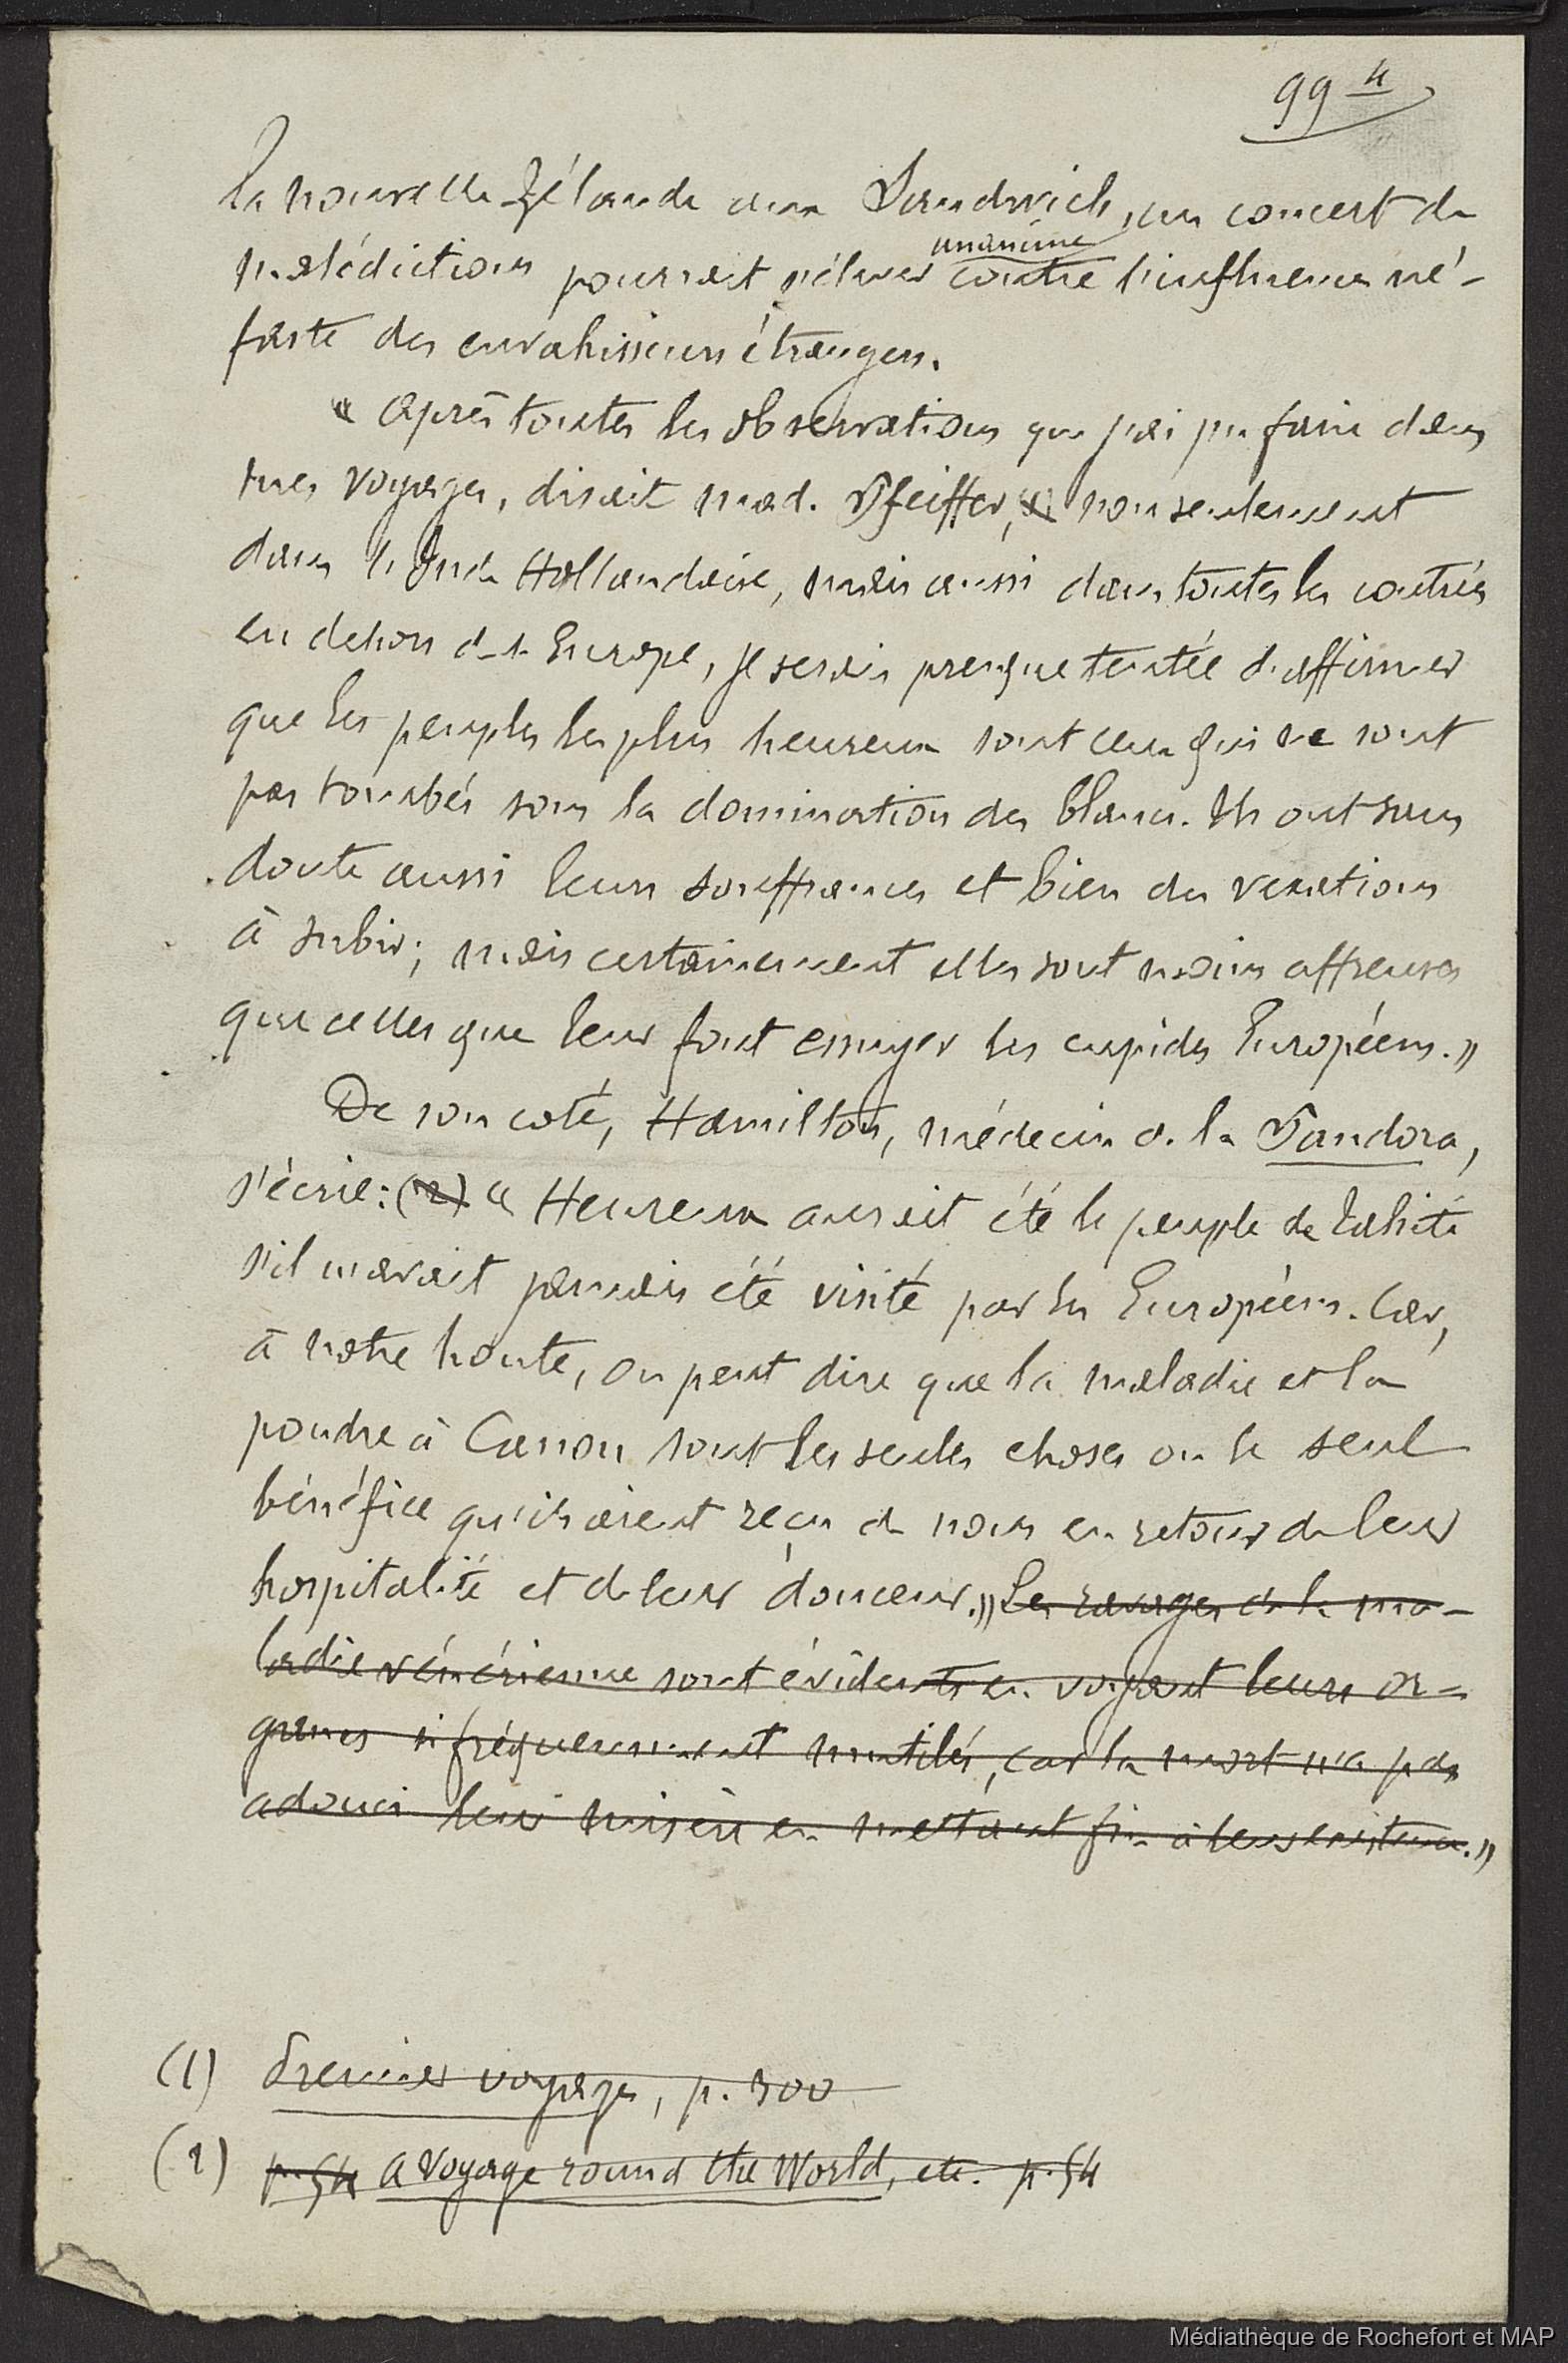 99 4
la nouvelle Zélande aux Sandwich, un concert de
unanime
malédictions pourrait s'élever contre l'influence né-
faste des envahisseurs étrangers.
« Après toutes les observations que j'ai pu faire dans
mes voyages, disait mad. Pfeiffer, (1) non seulement
dans l'Inde Hollandaise, mais aussi dans toutes les contrées
en dehors de l'Europe, je serais presque tentée d'affirmer
que les peuples les plus heureux sont ceux qui ne sont
pas tombés sous la domination des blancs. Ils ont sans
doute aussi leurs souffrances et bien des vexations
à subir; mais certainement elles sont moins affreuses
que celles que leur font essuyer les cupides Européens. »
De son coté, Hamilton, médecin de la Pandora,
s'écrie: (2) « Heureux aurait été le peuple de Tahiti
s'il n'avait jamais été visité par les Européens. Car,
à notre honte, on peut dire que la maladie et la
poudre à Canon sont les seules choses ou le seul
bénéfice qu'ils aient reçu de nous en retour de leur
hospitalité et de leur douceur. » Les ravages de la ma-
ladie vénérienne sont évidents en voyant leurs or-
ganes si fréquemment mutilés, car la mort n'a pas
adouci leur misère en mettant fin à leur existence. »
(1) Dernier voyage, p. 300
(2) p. 54 A Voyage round the World, etc. p. 54
Médiathèque de Rochefort et MAP